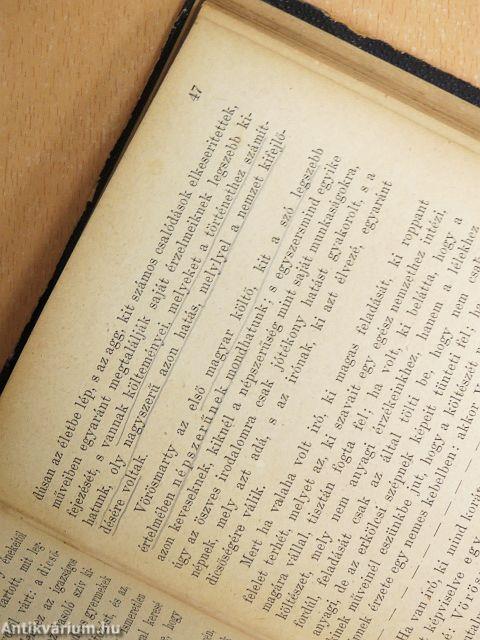 47
dúsan az életbe lép, s az agg, kit számos csalódások elkeserítettek,
műveiben egyaránt megtalálják saját érzelmeiknek legszebb ki-
fejezését, s vannak költeményei, melyeket a történethez számit-
hatunk, oly nagyszerű azon hatás, melylyel a nemzet kifejlő-
désére voltak.
Vörösmarty az első magyar költő, kit a szó legszebb
értelmében népszerűnek mondhatunk; s egyszersmind egyike
azon keveseknek, kiknél a népszerűség mint saját munkaságokra,
úgy az összes irodalomra csak jótékony hatást gyakorolt, s a
népnek, mely azt adá, s az irónak, ki azt élvezé, egyaránt
dicsőségére válik.
Mert ha valaha volt iró, ki magas feladását, ki roppant
felelet terhét, melyet az, ki szavait egy egész nemzethez intézi,
magára vállal, tisztán fogta fel; ha volt, ki belátta, hogy a
költészet, mely nem anyagi érzékeinkhez, hanem a lélekhez
fordúl, feladását csak az által tölti be, hogy nem csak
anyagi, de az erkölcsi szépnek képeit tünteti fel; ha
műveinél eszünkbe jut, hogy a költészet
érzete egy nemes kebelben: akkor V
van iró, ki mind korát
képviselve egy
Vörös
énekétől
tartott, mit leg-
várt: a dicső-
az igazságos
szív ki-
gyermekek
és az
ismeretlen
keresé
hogy
Antikvárium.hu